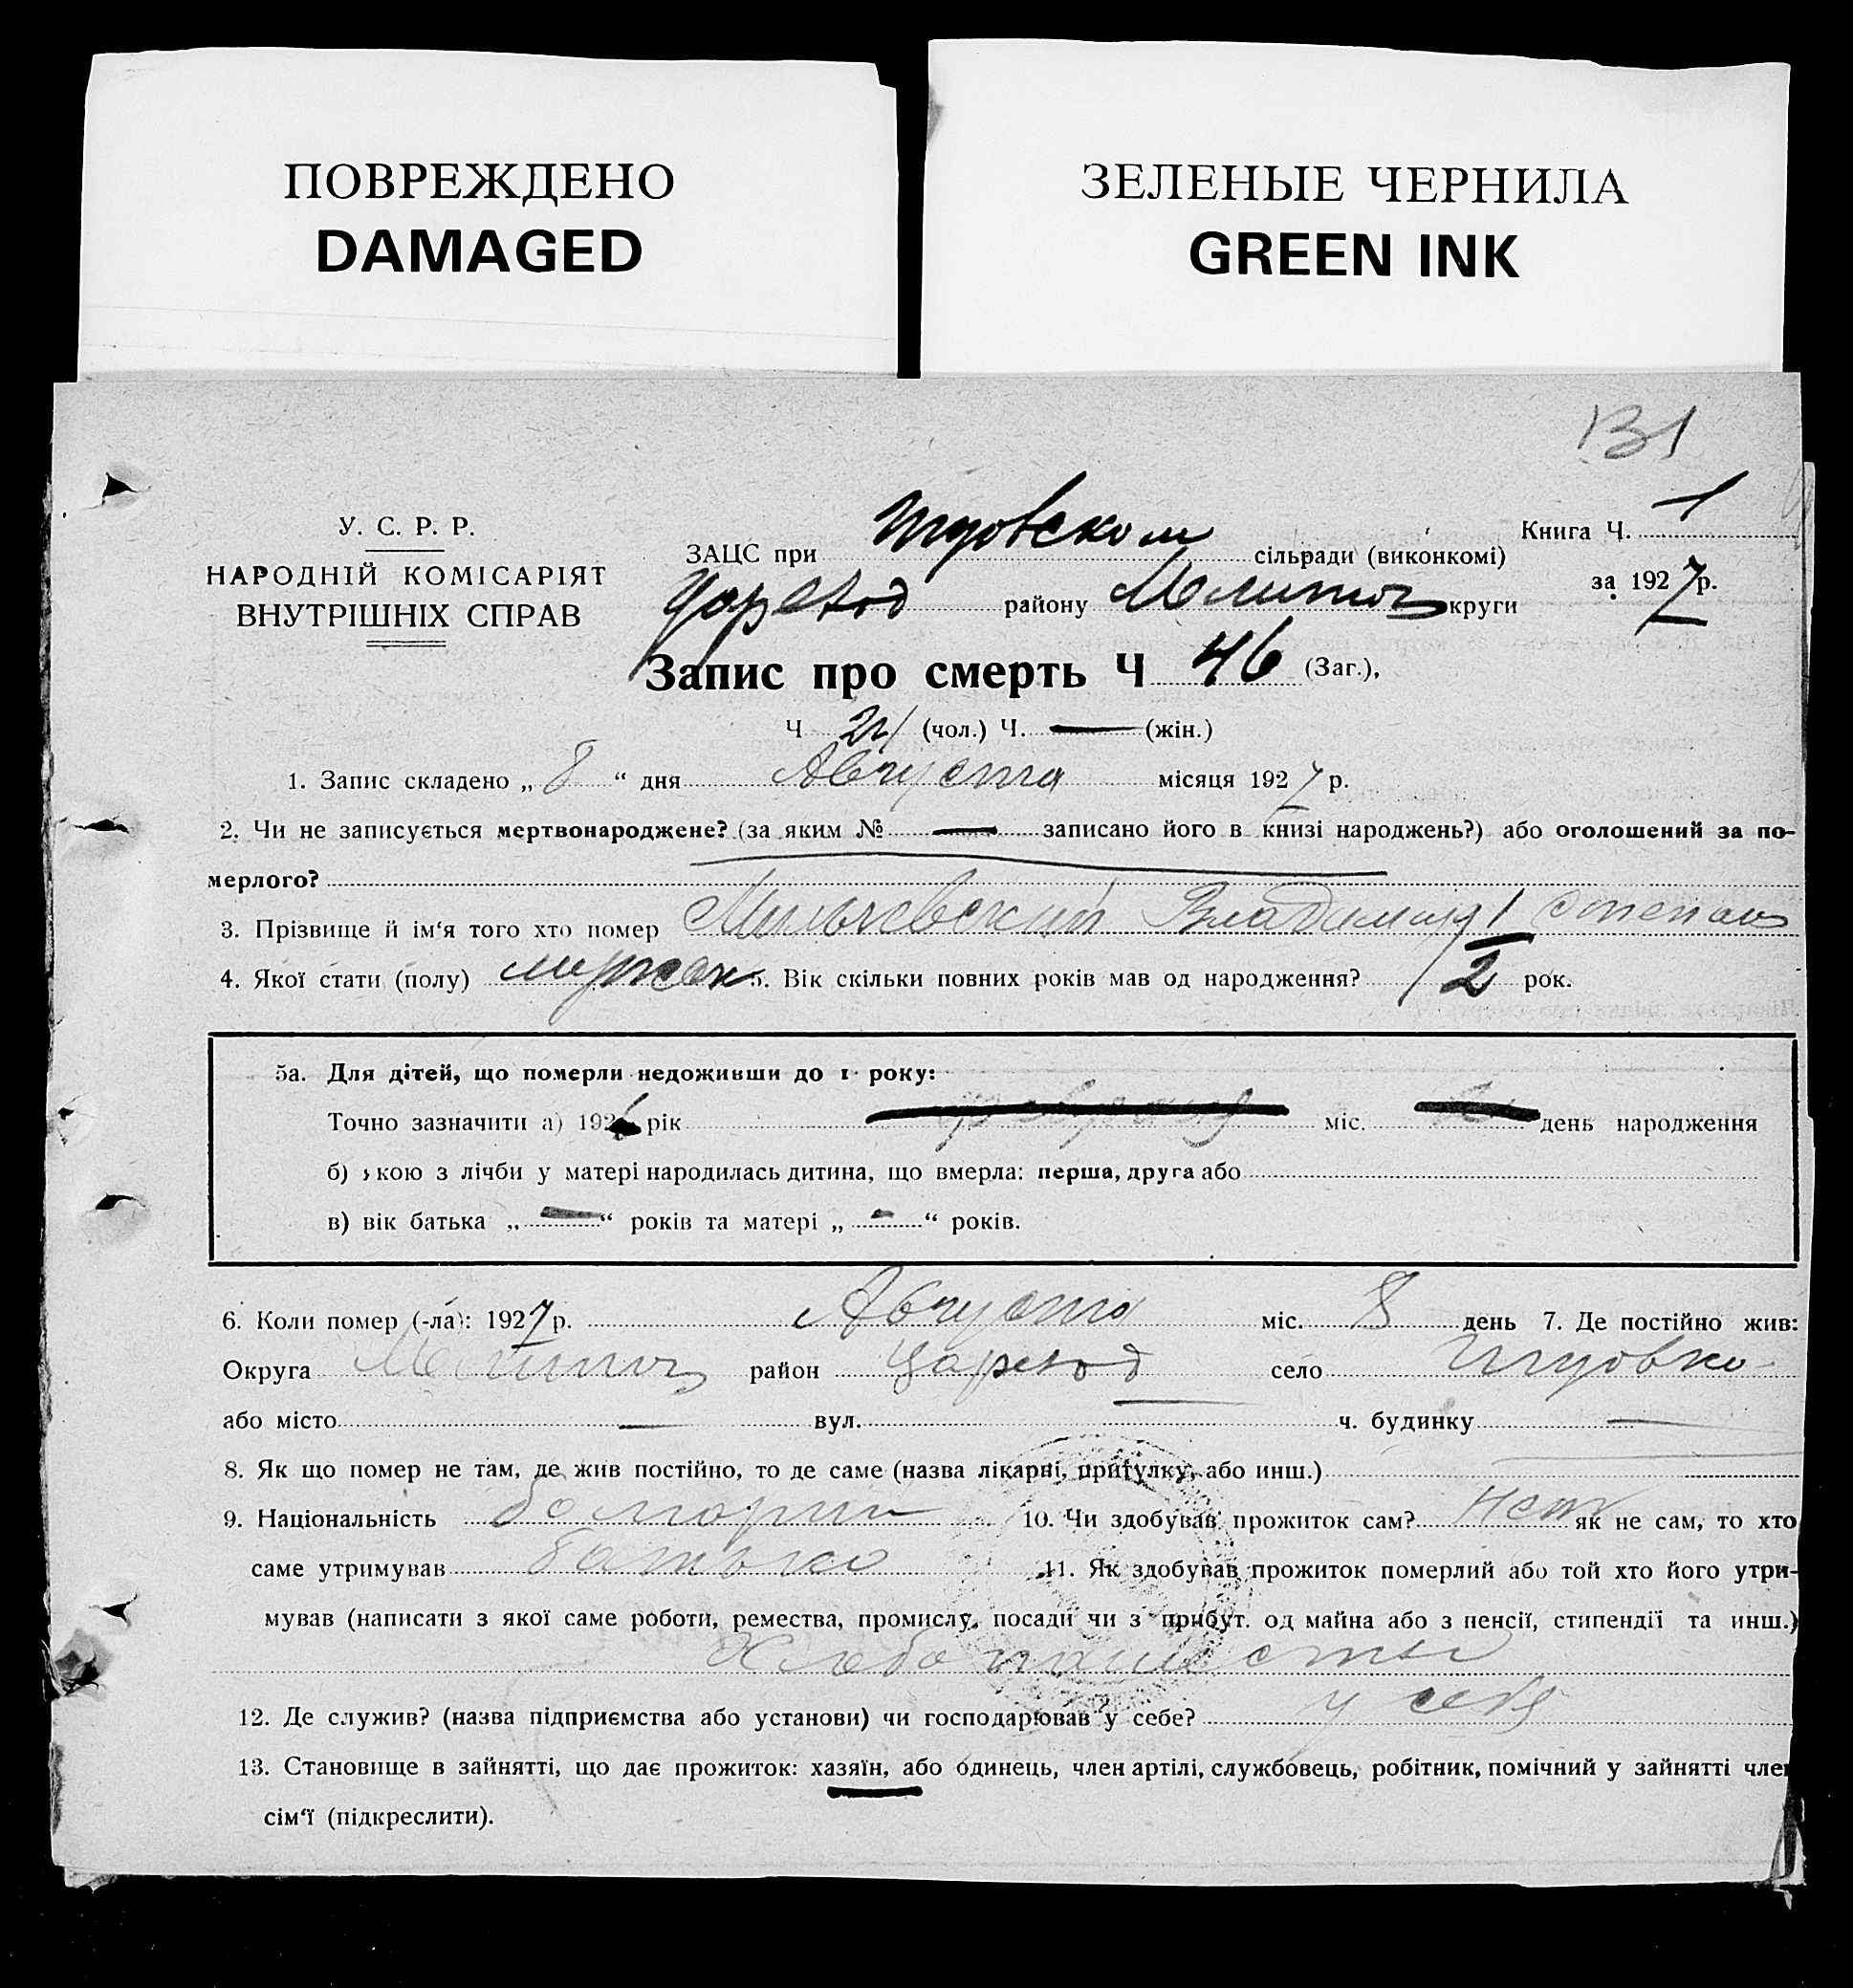 ПОВРЕЖДЕНО
DAMAGED
ЗЕЛЕНЫЕ ЧЕРНИЛА
GREEN INK
131
У. С. Р. Р.
НАРОДНІЙ КОМІСАРІЯТ
ВНУТРІШНІХ СПРАВ
ЗАЦС при сільради (виконкомі)
Книга Ч. 1
району округи
за 1927 р.
Запис про смерть Ч 46 (Заг.),
Ч 21 (чол.) Ч. — (жін.)
1. Запис складено „ 8 “ дня Августа місяця 1927 р.
2. Чи не записується мертвонароджене? (за яким № — записано його в книзі народжень?) або оголошений за по-
мерлого?
3. Прізвище й ім‘я того хто помер Владимир Степан
4. Якої стати (полу) мужск 5. Вік скільки повних років мав од народження? 1/2 рок.
5а. Для дітей, що померли недоживши до 1 року:
Точно зазначити а) 1926 рік міс. день народження
б) якою з лічби у матері народилась дитина, що вмерла: перша, друга або
в) вік батька „ — “ років та матері „ - “ років.
6. Коли помер (-ла): 1927 р. Августа міс. 8 день 7. Де постійно жив:
Округа Мелитоп район Царевод село
або місто — вул. — ч. будинку —
8. Як що помер не там, де жив постійно, то де саме (назва лікарні, притулку, або инш.)
9. Національність болгарин 10. Чи здобував прожиток сам? нет як не сам, то хто
саме утримував батько 11. Як здобував прожиток померлий або той хто його утри-
мував (написати з якої саме роботи, ремества, промислу, посади чи з прибут. од майна або з пенсії, стипендії та инш.)
Хлебопашество
12. Де служив? (назва підприємства або установи) чи господарював у себе? у себя
13. Становище в зайнятті, що дає прожиток: хазяїн, або одинець, член артілі, службовець, робітник, помічний у зайнятті член
сім‘ї (підкреслити).